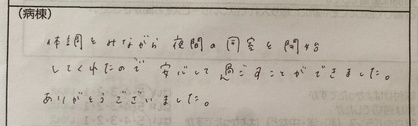 (病棟)
体調をみながら 夜間の同室を開始
してくれたので 安心して過ごすことができました。
ありがとうございました。